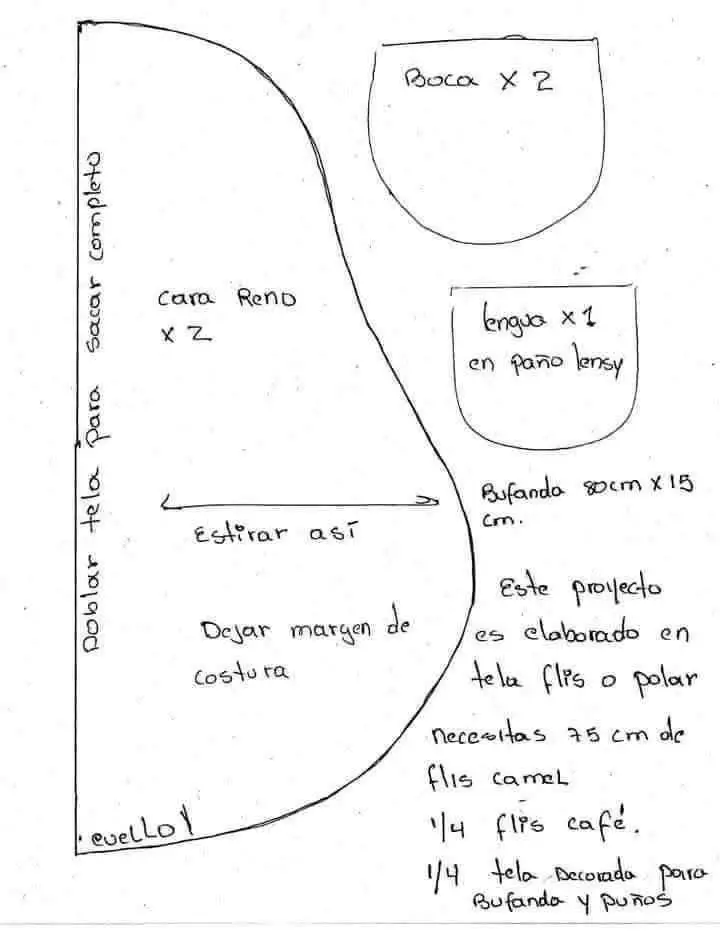 Boca x 2
Doblar tela para sacar completo
cara Reno
x 2
lengua x 1
en paño lensy
Estirar así
Bufanda 80cm x 15
cm.
Dejar margen de
costura
Este proyecto
es elaborado en
tela flis o polar
necesitas 75 cm de
flis camel
1/4 flis café.
1/4 tela Decorada para
Bufanda y puños
cuello